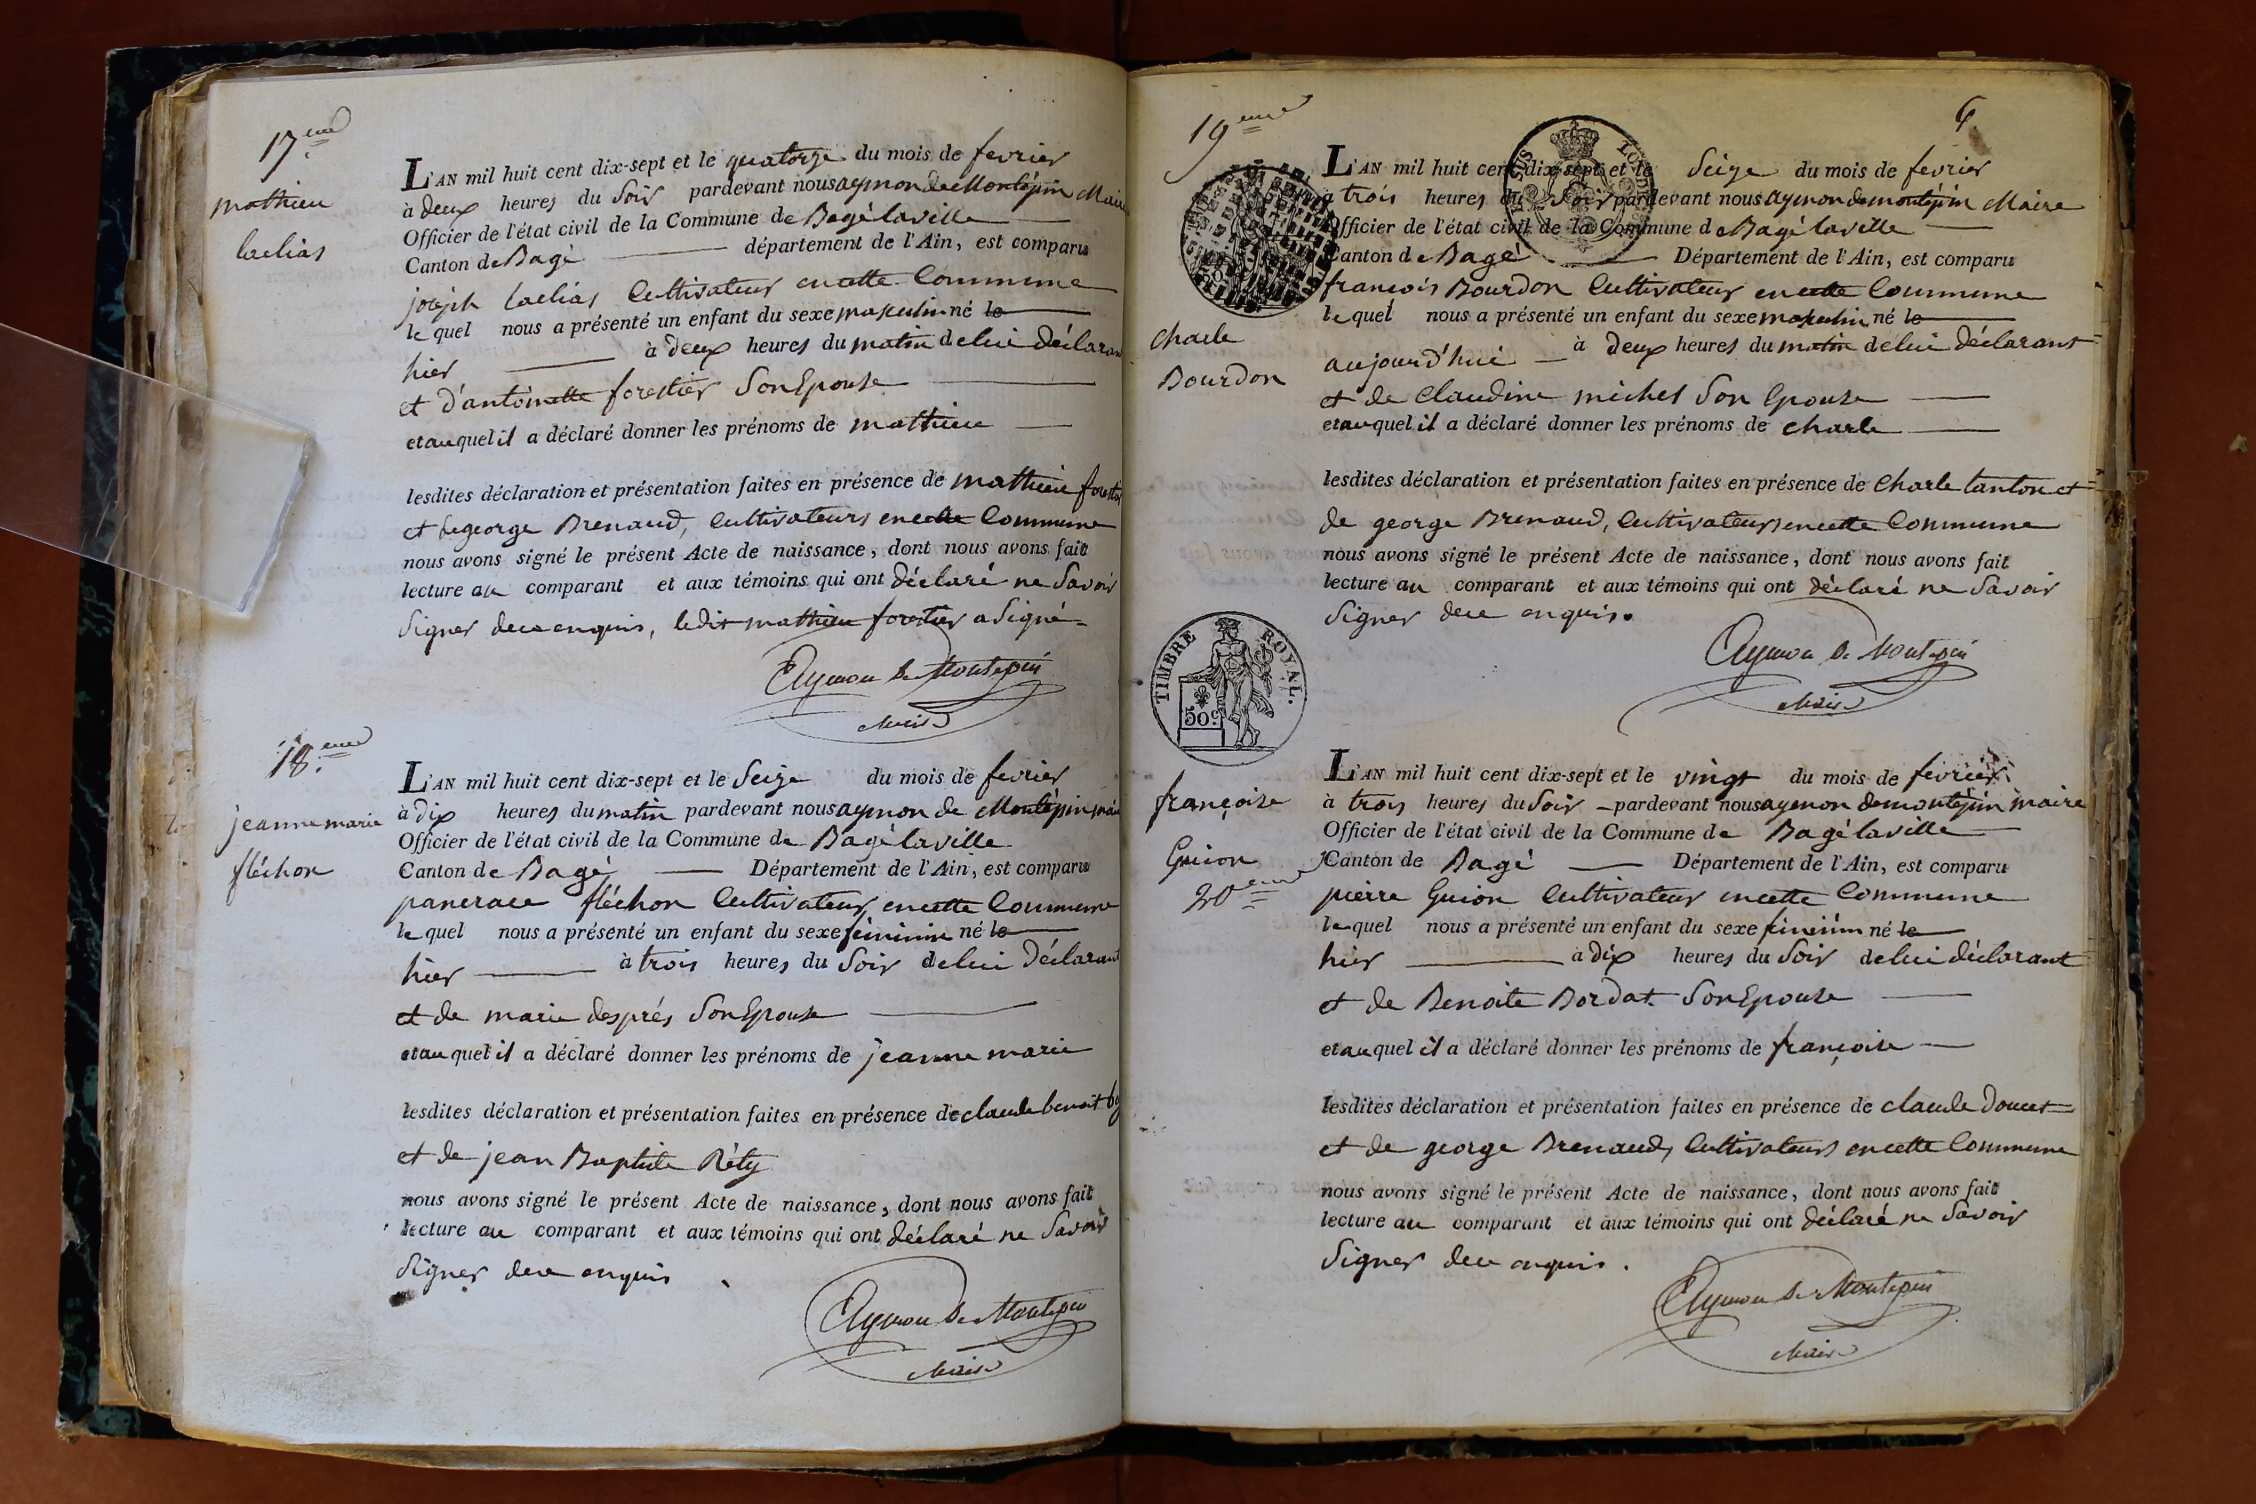 17.eme
mathieu
laclias
L'AN mil huit cent dix-sept et le quatorze du mois de fevrier
à deux heures du Soir pardevant nous aymon de Montépin Maire
Officier de l'état civil de la Commune de Bagé laville
Canton de Bagé département de l'Ain, est comparu
joseph laclias Cultivateur en cette Commune
le quel nous a présenté un enfant du sexe masculin né le
hier à deux heures du matin de lui déclarant
et d'antoinette forestier Son Epouse
et au quel il a déclaré donner les prénoms de mathieu
lesdites déclaration et présentation faites en présence de mathieu forestier
et de george Brenaud, Cultivateurs en cette Commune
nous avons signé le présent Acte de naissance, dont nous avons fait
lecture au comparant et aux témoins qui ont déclaré ne Savoir
Signer de ce enquis, ledit mathieu forestier a Signé
Aymon De Montepin
Maire
18.eme
jeanne marie
fléchon
L'AN mil huit cent dix-sept et le Seize du mois de fevrier
à dix heures du matin pardevant nous aymon de Montépin maire
Officier de l'état civil de la Commune de Bagé laville
Canton de Bagé Département de l'Ain, est comparu
pancrace fléchon Cultivateur en cette Commune
le quel nous a présenté un enfant du sexe féminin né le
hier à trois heures du Soir de lui Déclarant
et de marie després Son Epouse
et au quel il a déclaré donner les prénoms de jeanne marie
lesdites déclaration et présentation faites en présence de claude benoit
et de jean Baptiste Réty
nous avons signé le présent Acte de naissance, dont nous avons fait
lecture au comparant et aux témoins qui ont déclaré ne Savoir
Signer de ce enquis
Aymon De Montepin
Maire
6
19eme
charle
Bourdon
L'AN mil huit cent dix-sept et le Seize du mois de fevrier
à trois heures du Soir pardevant nous aymon de montépin Maire
Officier de l'état civil de la Commune de Bagé laville
Canton de Bagé Département de l'Ain, est comparu
francois Bourdon Cultivateur en cette Commune
le quel nous a présenté un enfant du sexe masculin né le
aujourd'hui à deux heures du matin de lui déclarant
et de Claudine michel Son Epouse
et au quel il a déclaré donner les prénoms de charle
lesdites déclaration et présentation faites en présence de Charle tanton et
de george Brenaud, Cultivateurs en cette Commune
nous avons signé le présent Acte de naissance, dont nous avons fait
lecture au comparant et aux témoins qui ont déclaré ne Savoir
Signer de ce enquis.
Aymon De Montepin
Maire
TIMBRE ROYAL.
50c
françoise
Guion
20eme
L'AN mil huit cent dix-sept et le vingt du mois de fevrier
à trois heures du Soir pardevant nous aymon de montépin maire
Officier de l'état civil de la Commune de Bagé laville
Canton de Bagé Département de l'Ain, est comparu
pierre Guion Cultivateur en cette Commune
le quel nous a présenté un enfant du sexe féminin né le
hier à dix heures du Soir de lui déclarant
et de Benoite Bordat Son Epouse
et au quel il a déclaré donner les prénoms de françoise
lesdites déclaration et présentation faites en présence de claude Doucet
et de george Brenaud, Cultivateurs en cette Commune
nous avons signé le présent Acte de naissance, dont nous avons fait
lecture au comparant et aux témoins qui ont déclaré ne Savoir
Signer de ce enquis.
Aymon De Montepin
Maire